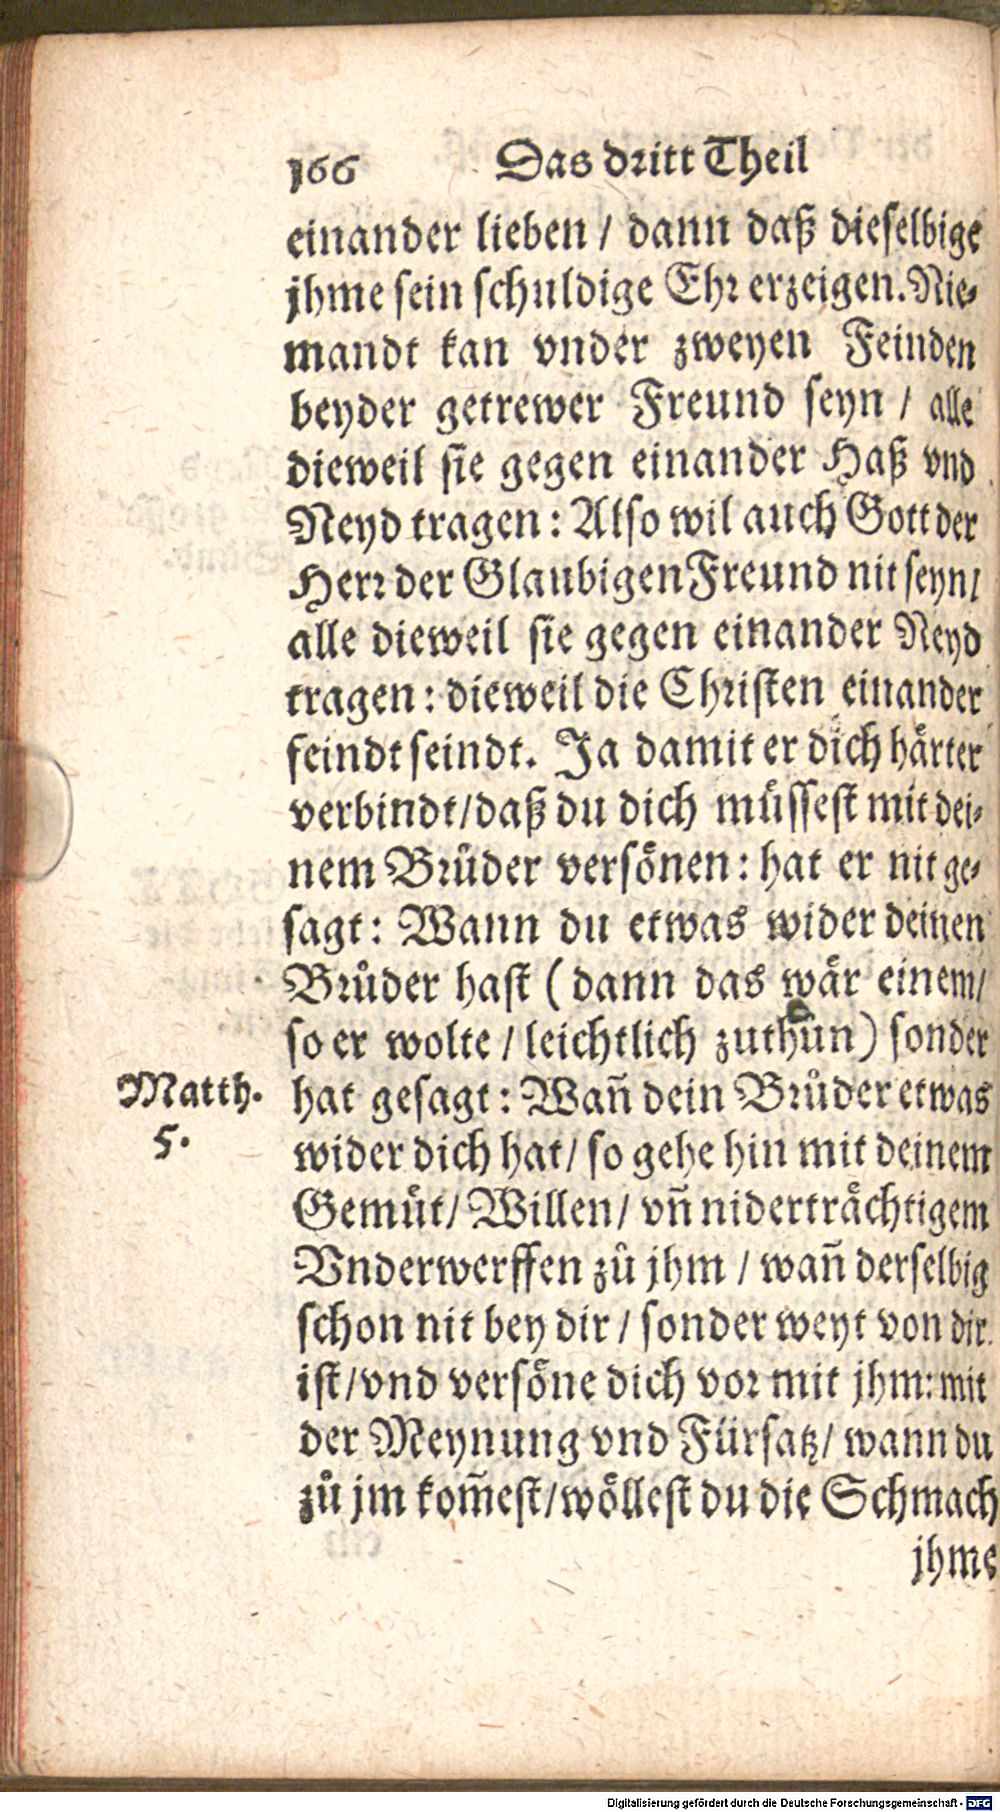 166 Das dritt Theil
einander lieben / dann daß dieselbige
jhme sein schuldige Ehr erzeigen. Nie-
mandt kan vnder zweyen Feinden
beyder getrewer Freund seyn / alle
dieweil sie gegen einander Haß vnd
Neyd tragen: Also wil auch Gott der
Herr der Glaubigen Freund nit seyn /
alle dieweil sie gegen einander Neyd
tragen: dieweil die Christen einander
feindt seindt. Ja damit er dich haͤrter
verbindt / daß du dich muͤssest mit dei-
nem Bruͦder versoͤnen: hat er nit ge-
sagt: Wann du etwas wider deinen
Bruͦder hast (dann das waͤr einem /
so er wolte / leichtlich zuthuͦn) sonder
Matth. 5.
hat gesagt: Wañ dein Bruͦder etwas
wider dich hat / so gehe hin mit deinem
Gemuͤt / Willen / vñ nidertraͤchtigem
Vnderwerffen zuͦ jhm / wañ derselbig
schon nit bey dir / sonder weyt von dir
ist / vnd versoͤne dich vor mit jhm: mit
der Meynung vnd Fürsatz / wann du
zuͦ jm kom̃est / woͤllest du die Schmach
jhme
Digitalisierung gefördert durch die Deutsche Forschungsgemeinschaft - DFG